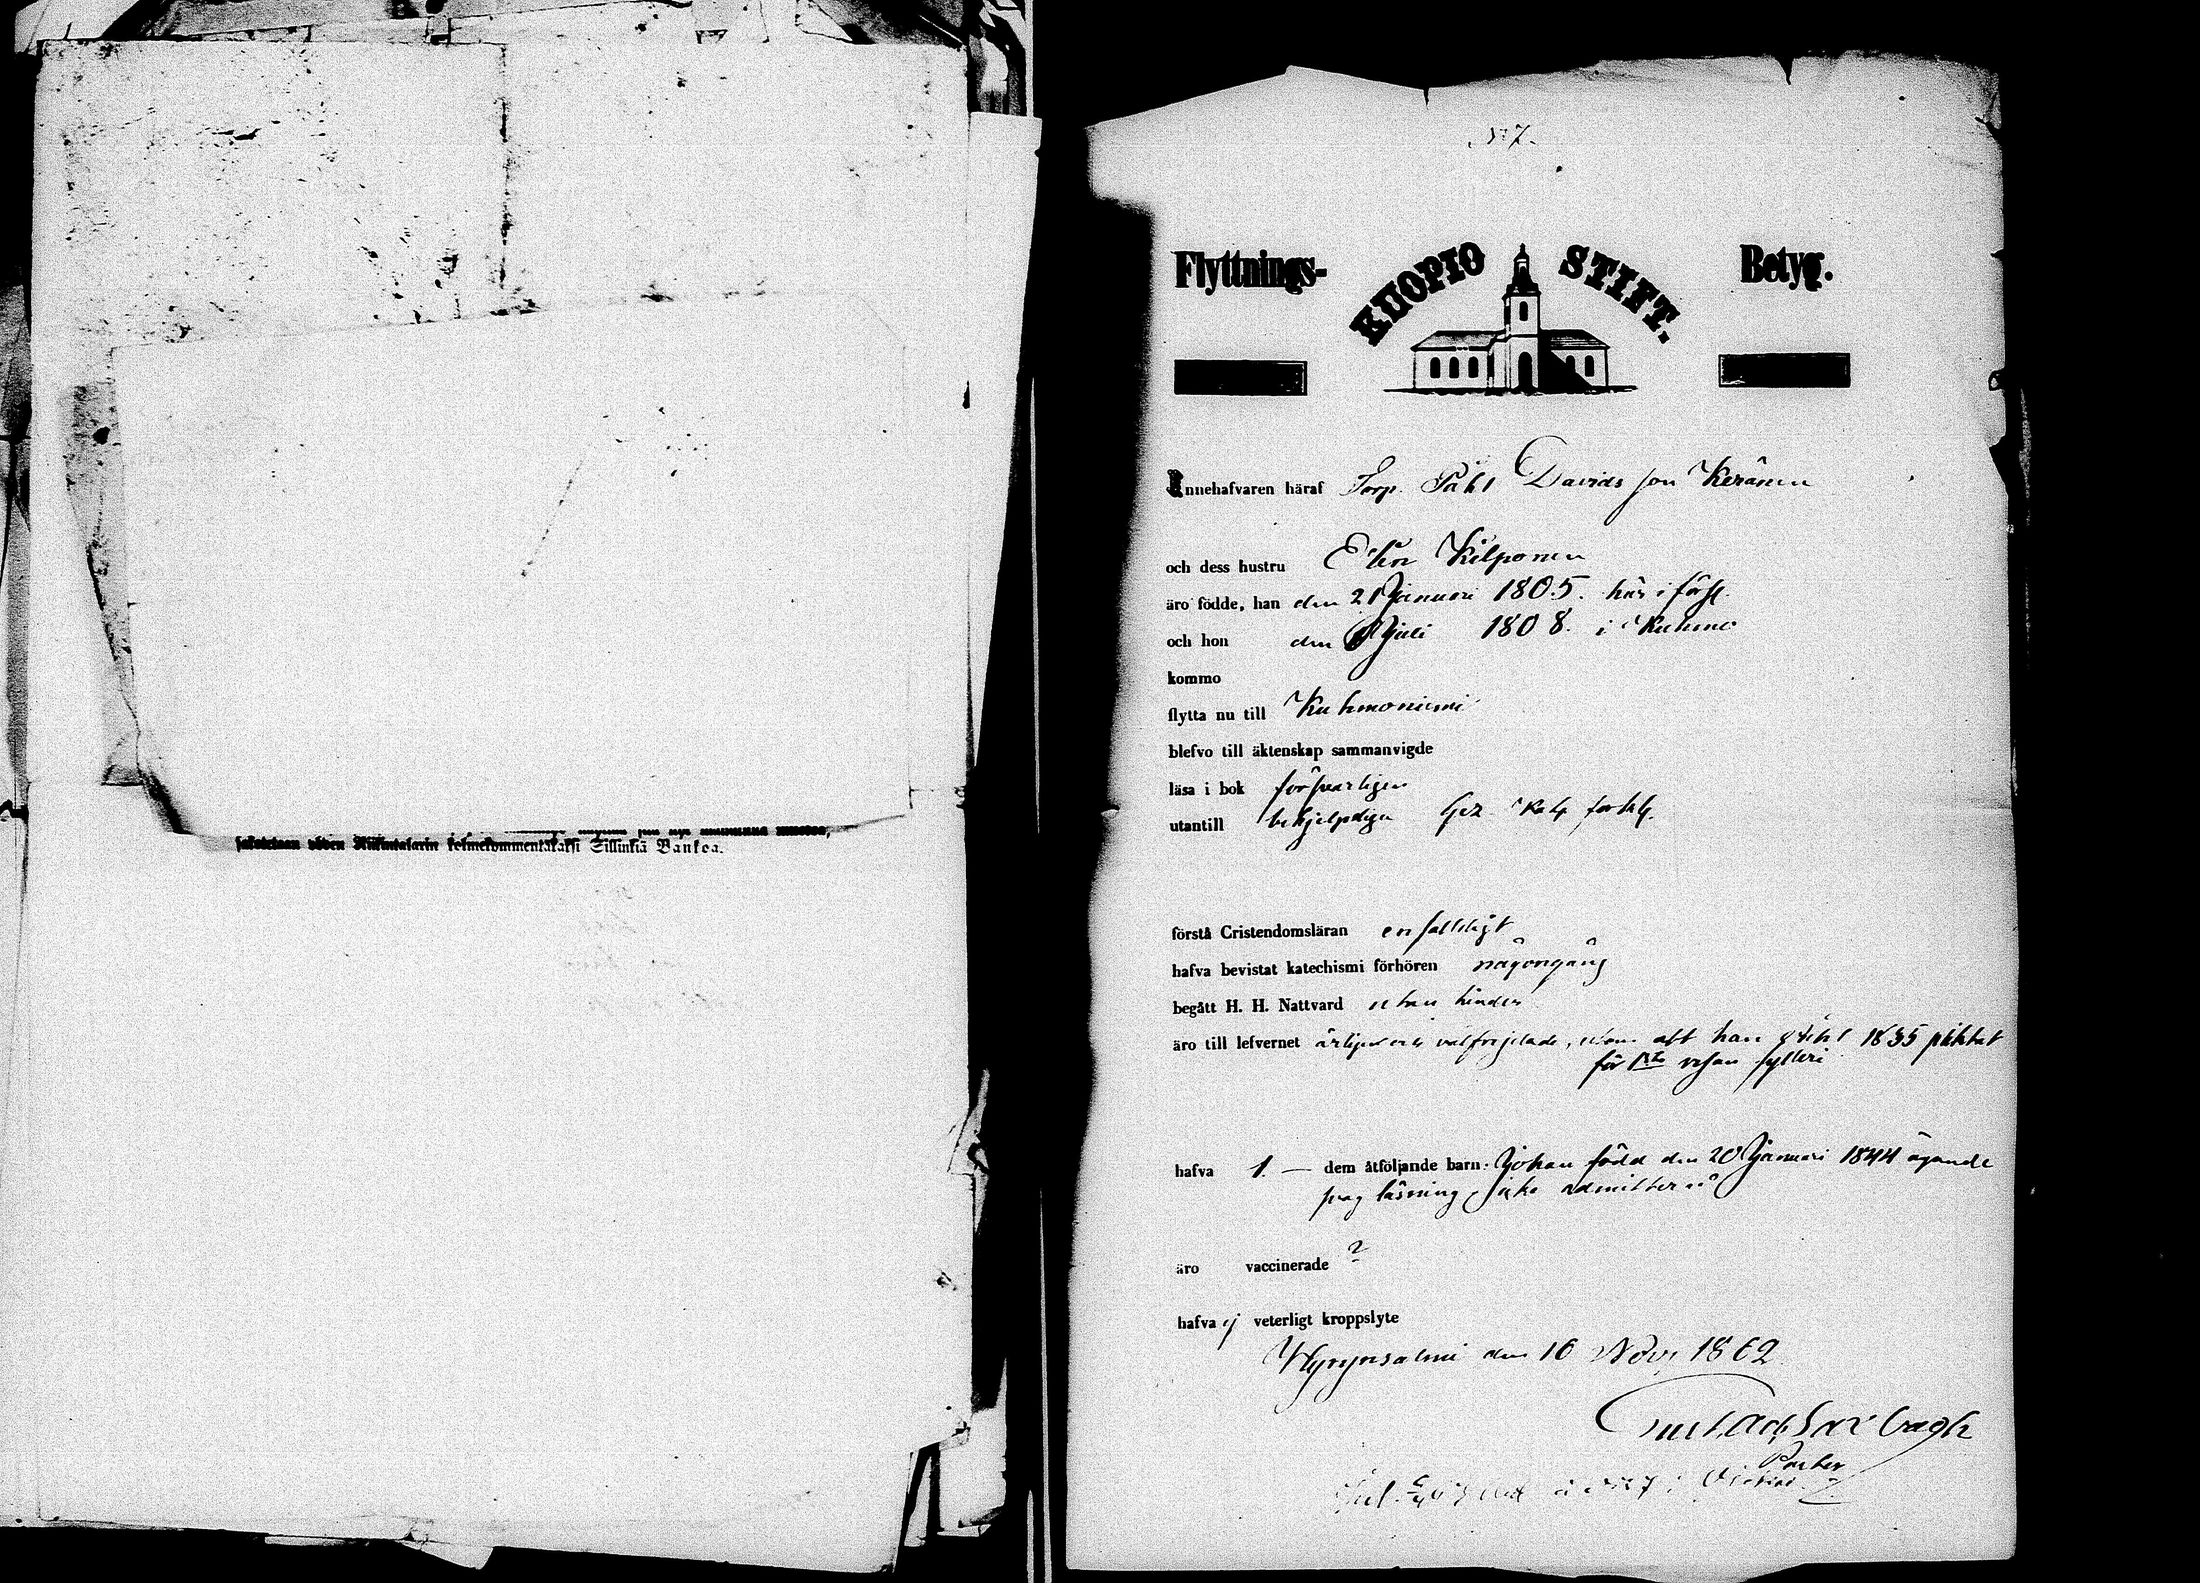 sakaretaan yöden Riikintalarin kolmekymmentäkaksi Sillinkiä Bankoa.
N:o 7.
Flyttnings- KUOPIO STIFT. Betyg.
Innehafvaren häraf Torp. Påhl Davidsson Keränen
och dess hustru Elin Kilponen
äro födde, han den 21 Januari 1805. här i förs.
och hon den Juli 1808. i Kuhmo
kommo
flytta nu till Kuhmoniemi
blefvo till äktenskap sammanvigde
läsa i bok försvarligen
utantill behjelpligen
förstå Cristendomsläran enfaldeligt
hafva bevistat katechismi förhören någongång
begått H. H. Nattvard utan hinder
äro till lefvernet ärlige och välfrejdade, utom att han 1835 pliktat
för 1sta resan fylleri
hafva 1. — dem åtföljande barn: Johan född den 20 Januari 1844 ägande
svag läsning, icke admitterad
äro vaccinerade ?
hafva ej veterligt kroppslyte
Hyrynsalmi den 16 Nov. 1862
Pastor